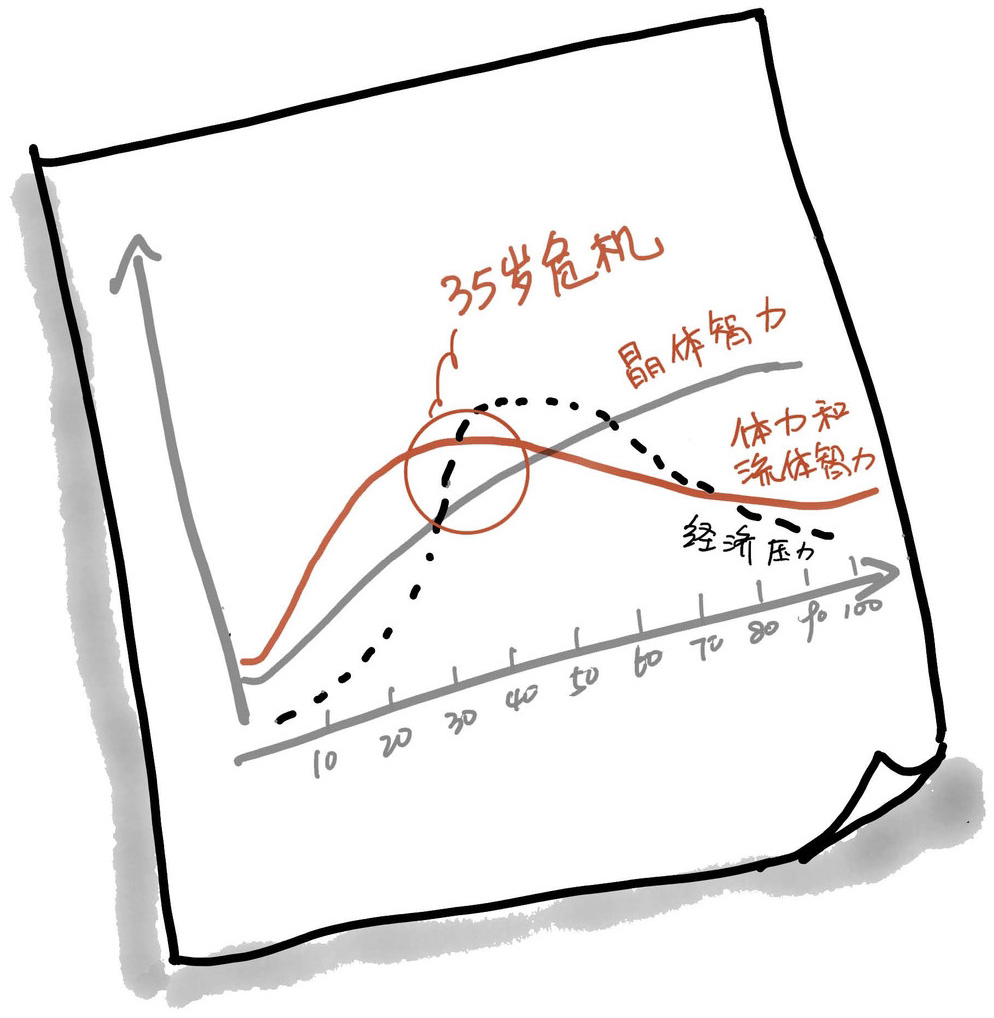 35岁危机
晶体智力
体力和
流体智力
经济压力
10 20 30 40 50 60 70 80 90 100